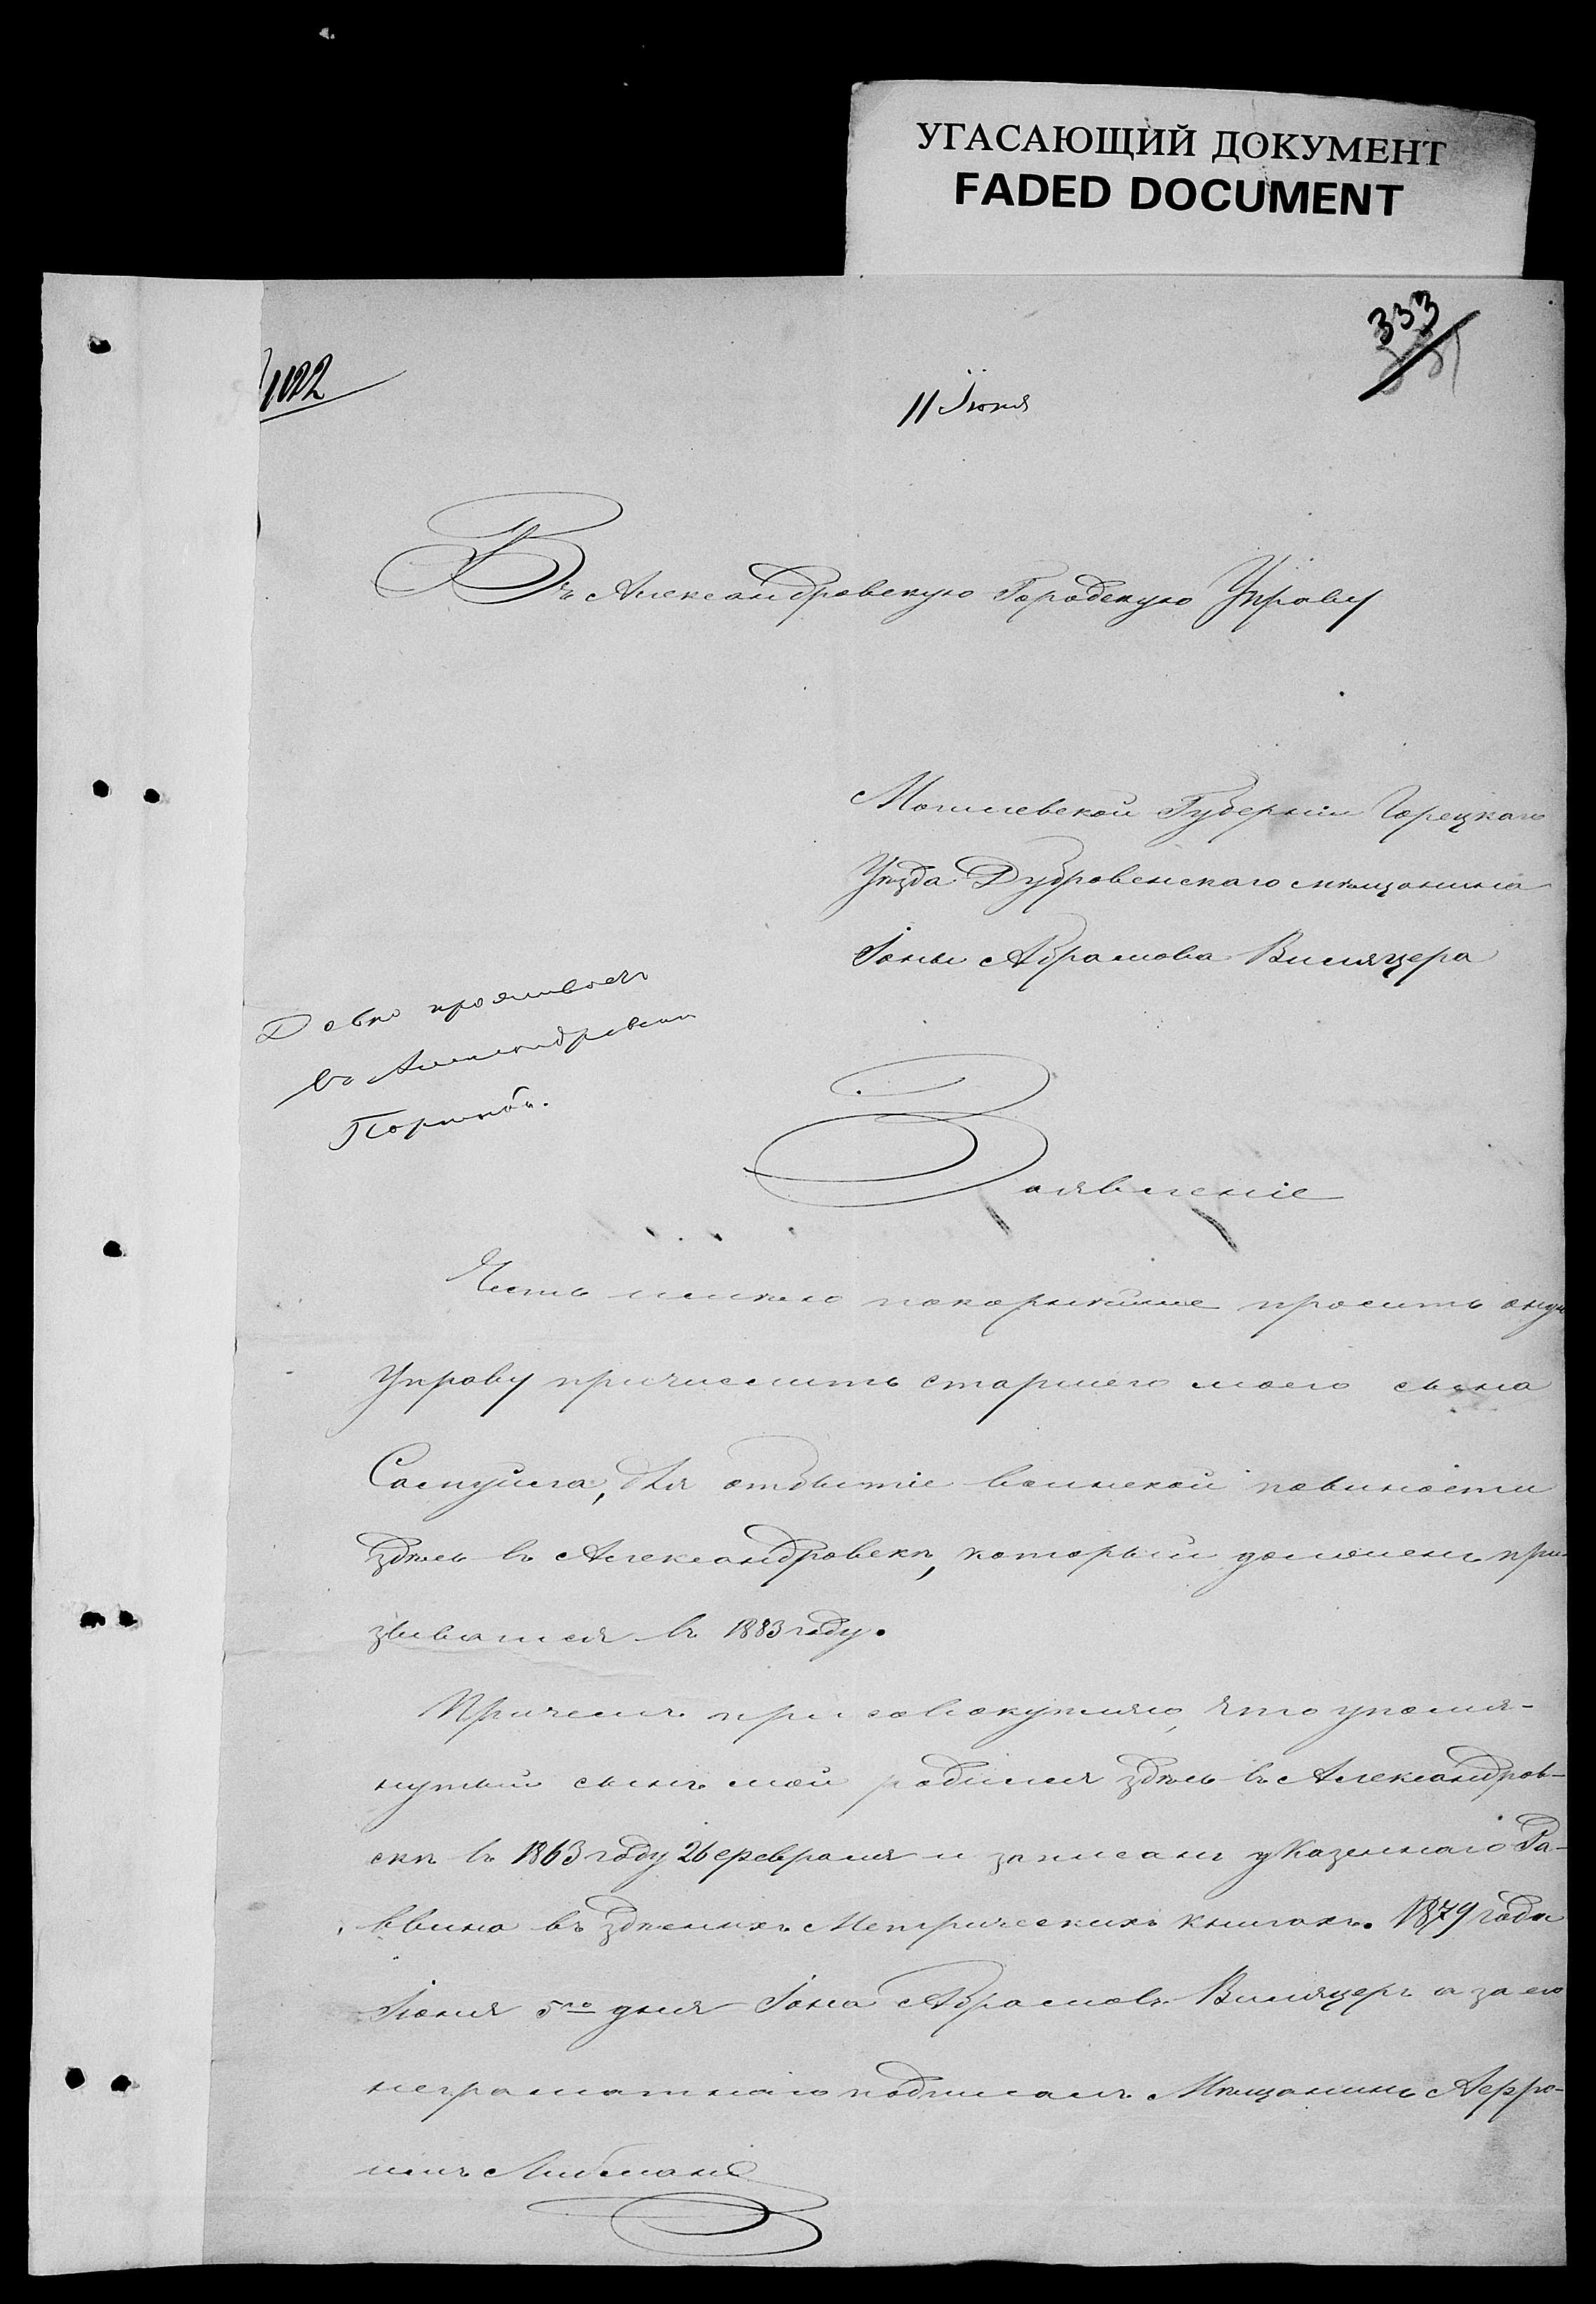 УГАСАЮЩИЙ ДОКУМЕНТ
FADED DOCUMENT
333
1122
11 Іюня
Въ Александровскую Городскую Управу
Могилевской Губерніи Горецкаго
Уѣзда Дубровенскаго мѣщанина
Іоны Абрамова
Давно проживаетъ
въ Александровске
Заявленіе
Честь имѣю покорнѣйше просить оную
Управу причислить старшего моего сына
Самуйла, для отбытіе воинской повиности
здѣсь въ Александровскѣ, который долженъ при-
зыватся въ 1883 году.
Причемъ присовокупляю, что упомя-
нутый сынъ мой родился здѣсь въ Александров-
скѣ въ 1863 году 26 февраля и записанъ у Казеннаго Ра-
ввина въ здѣшнихъ Метрическихъ книгахъ. 1879 года
Іюня 5го дня Іона Абрамовъ а за его
неграматнаго подписалъ Мѣщанинъ
Либманъ